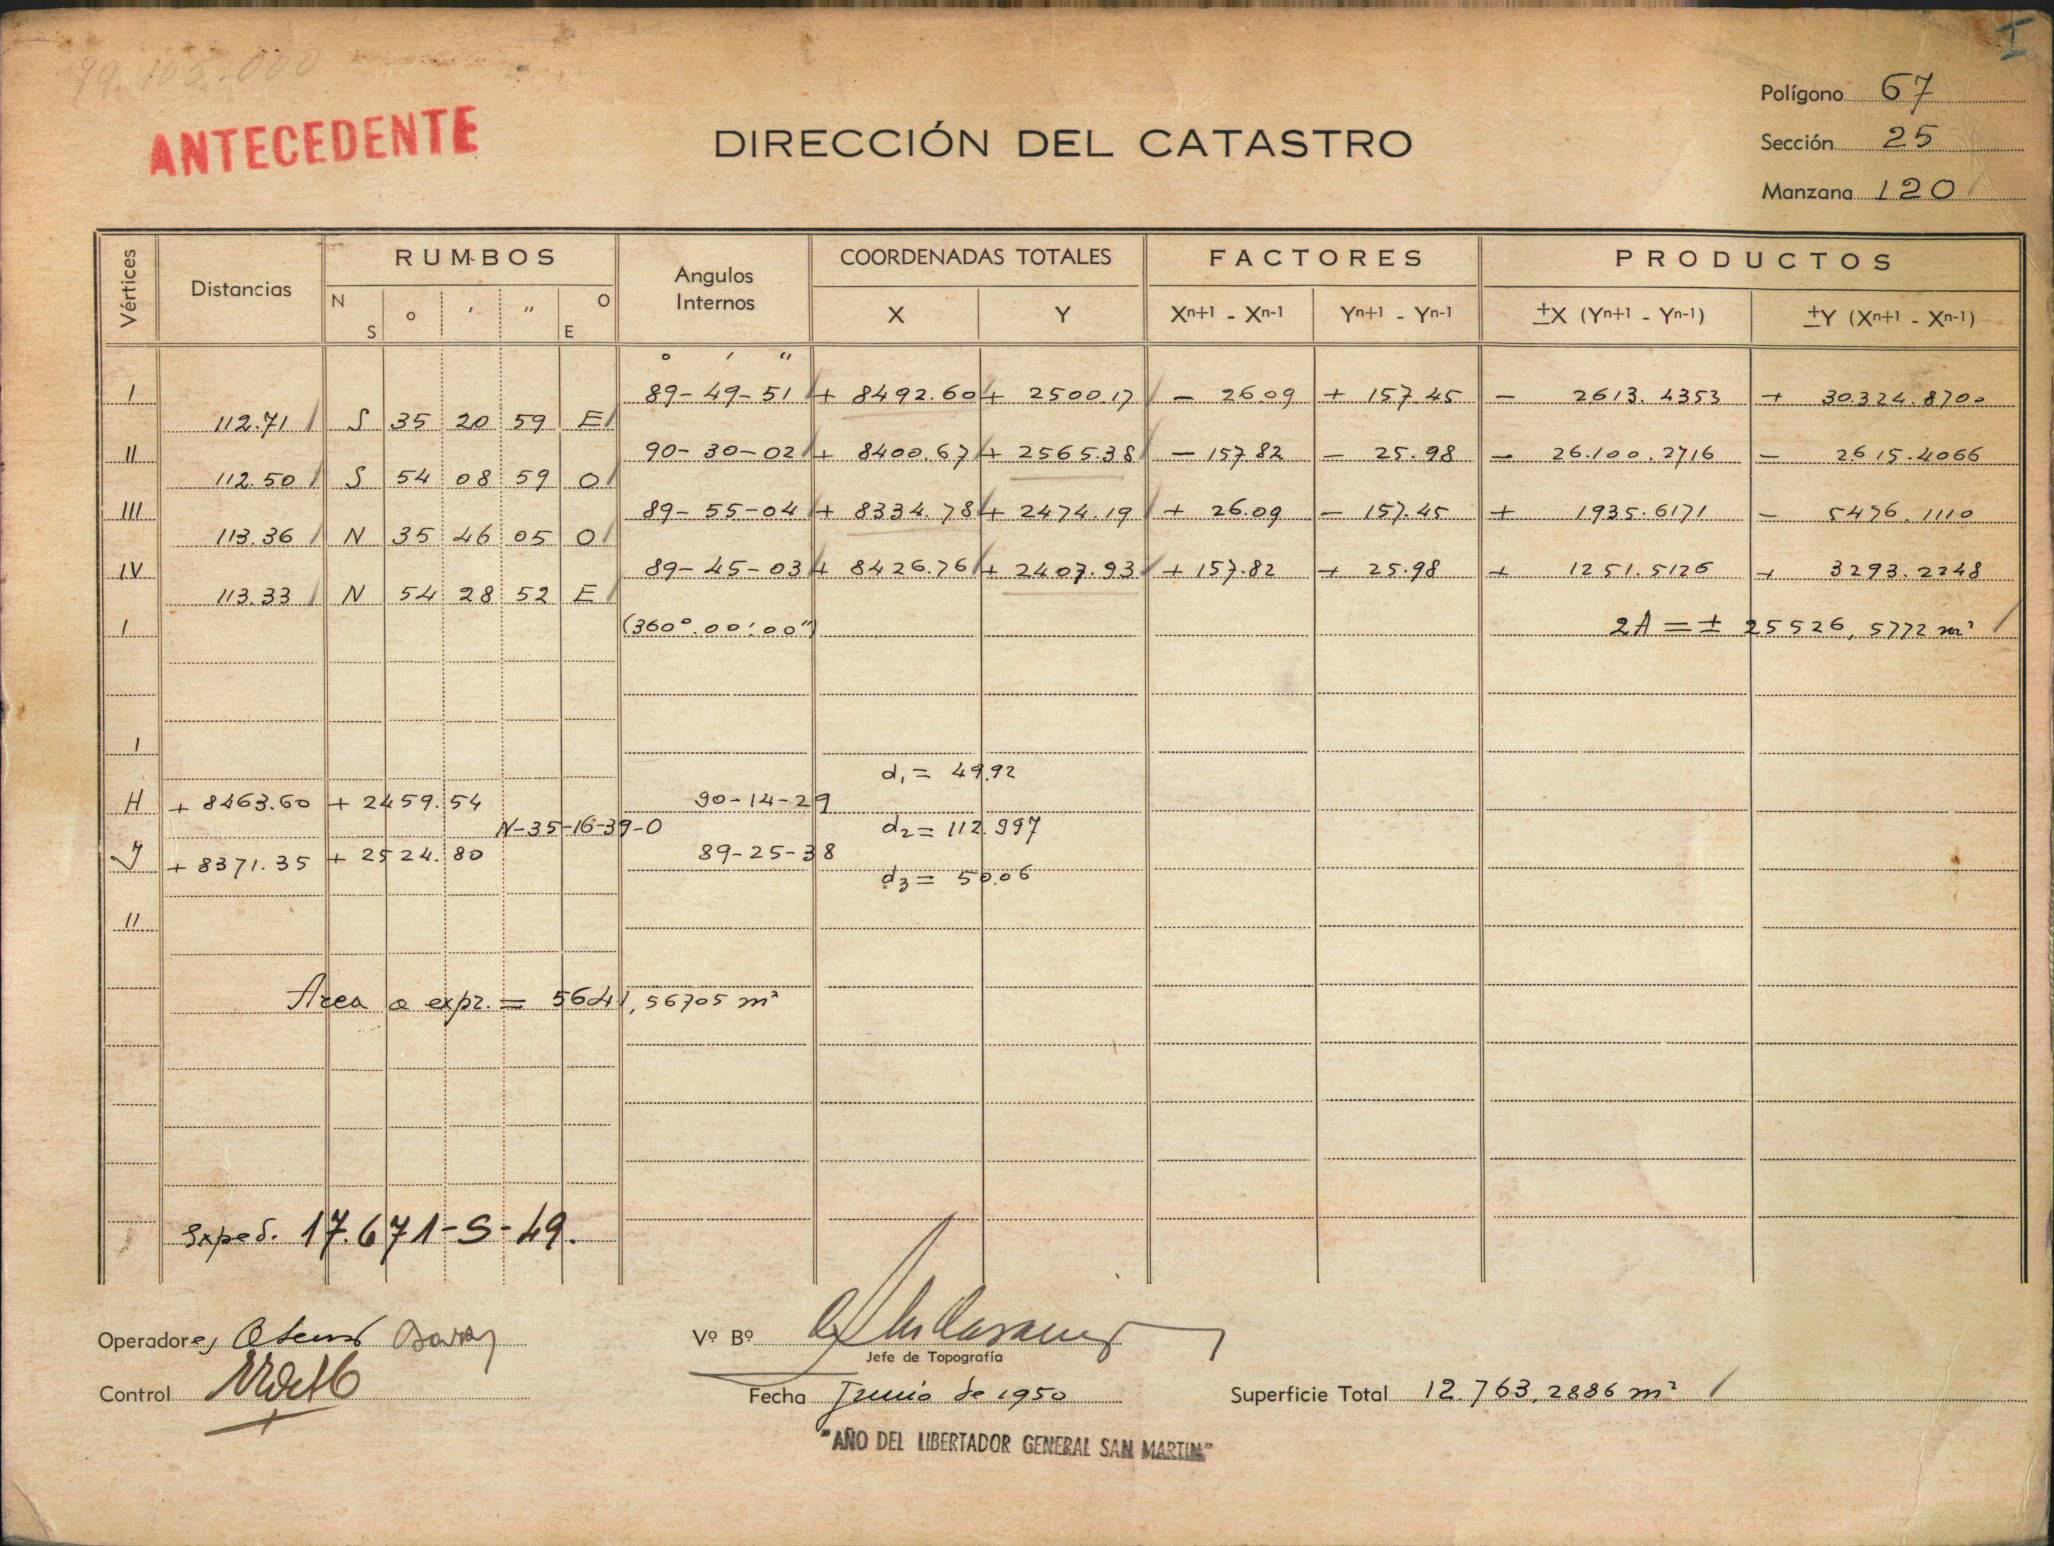 79.105.000
ANTECEDENTE
DIRECCIÓN DEL CATASTRO
Polígono 67
Sección 25
Manzana 120
I
Vértices Distancias RUMBOS Angulos Internos COORDENADAS TOTALES FACTORES PRODUCTOS
N S ° ' " O E X Y Xn+1 - Xn-1 Yn+1 - Yn-1 ±X (Yn+1 - Yn-1) ±Y (Xn+1 - Xn-1)
° ' "
I 89-49-51 + 8492.60 + 2500.17 - 26.09 + 157.45 - 2613.4353 + 30.324.8700
112.71 S 35 20 59 E
II 90-30-02 + 8400.67 + 2565.38 - 157.82 - 25.98 - 26.100.2716 - 2615.4066
112.50 S 54 08 59 O
III 89-55-04 + 8334.78 + 2474.19 + 26.09 - 157.45 + 1935.6171 - 5476.1110
113.36 N 35 46 05 O
IV 89-45-03 + 8426.76 + 2407.93 + 157.82 + 25.98 + 1251.5126 + 3293.2248
113.33 N 54 28 52 E
I (360°.00'.00") 2A = ± 25526,5772 m²
I
d1 = 49.92
H + 8463.60 + 2459.54 90-14-29
N-35-16-39-O d2 = 112.997
J + 8371.35 + 2524.80 89-25-38
d3 = 50.06
II
Area a expr. = 5641,56705 m²
Exped. 17.671-S-49.
Operadores
Vº Bº
Jefe de Topografía
Control
Fecha Junio de 1950
Superficie Total 12.763,2886 m²
"AÑO DEL LIBERTADOR GENERAL SAN MARTIN"